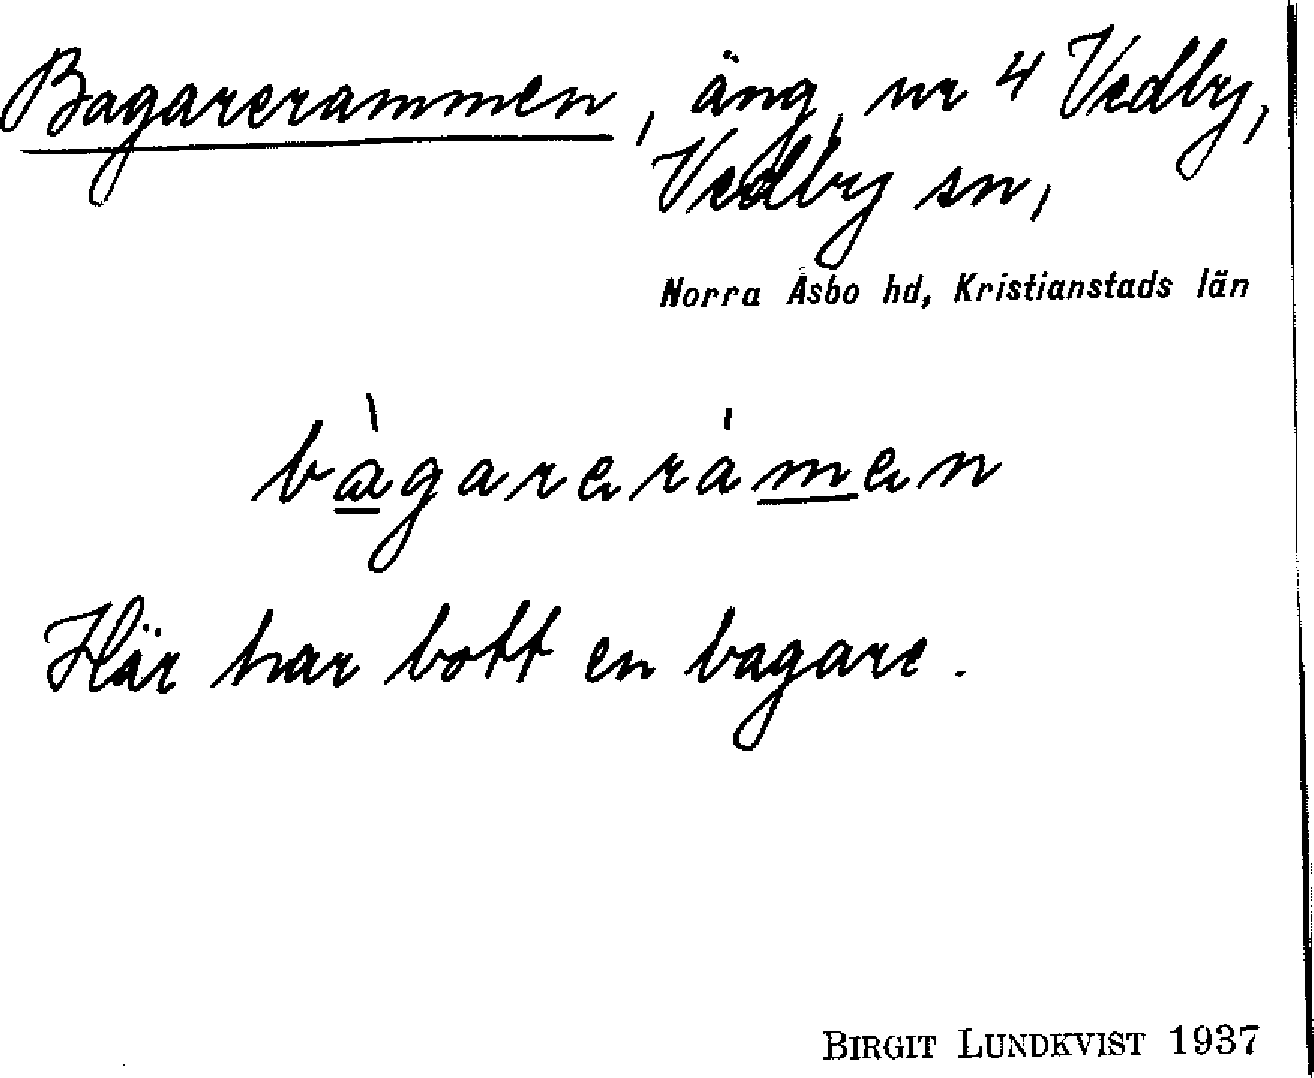 Bagarerammen, äng, nr 4 Vedby,
Vedby sn,
Norra Åsbo hd, Kristianstads län
bàgareràmen
Här har bott en bagare.
BIRGIT LUNDKVIST 1937